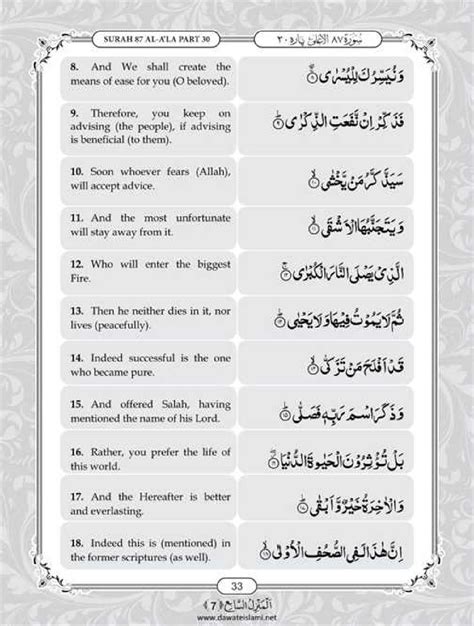 SURAH 87 AL-A'LA PART 30
سُوْرَةُ ٨٧ الْاَعْلٰى پارہ ٣٠
8. And We shall create the
means of ease for you (O beloved).
وَنُيَسِّرُكَ لِلْيُسْرٰى ۝٨
9. Therefore, you keep on
advising (the people), if advising
is beneficial (to them).
فَذَكِّرْ اِنْ نَّفَعَتِ الذِّكْرٰى ۝٩
10. Soon whoever fears (Allah),
will accept advice.
سَيَذَّكَّرُ مَنْ يَّخْشٰى ۝١٠
11. And the most unfortunate
will stay away from it.
وَيَتَجَنَّبُهَا الْاَشْقَى ۝١١
12. Who will enter the biggest
Fire.
الَّذِيْ يَصْلَى النَّارَ الْكُبْرٰى ۝١٢
13. Then he neither dies in it, nor
lives (peacefully).
ثُمَّ لَا يَمُوْتُ فِيْهَا وَلَا يَحْيٰى ۝١٣
14. Indeed successful is the one
who became pure.
قَدْ اَفْلَحَ مَنْ تَزَكّٰى ۝١٤
15. And offered Salah, having
mentioned the name of his Lord.
وَذَكَرَ اسْمَ رَبِّهٖ فَصَلّٰى ۝١٥
16. Rather, you prefer the life of
this world.
بَلْ تُؤْثِرُوْنَ الْحَيٰوةَ الدُّنْيَا ۝١٦
17. And the Hereafter is better
and everlasting.
وَالْاٰخِرَةُ خَيْرٌ وَّاَبْقٰى ۝١٧
18. Indeed this is (mentioned) in
the former scriptures (as well).
اِنَّ هٰذَا لَفِي الصُّحُفِ الْاُوْلٰى ۝١٨
33
اَلْمَنْزِلُ السَّابِع ﴿7﴾
www.dawateislami.net